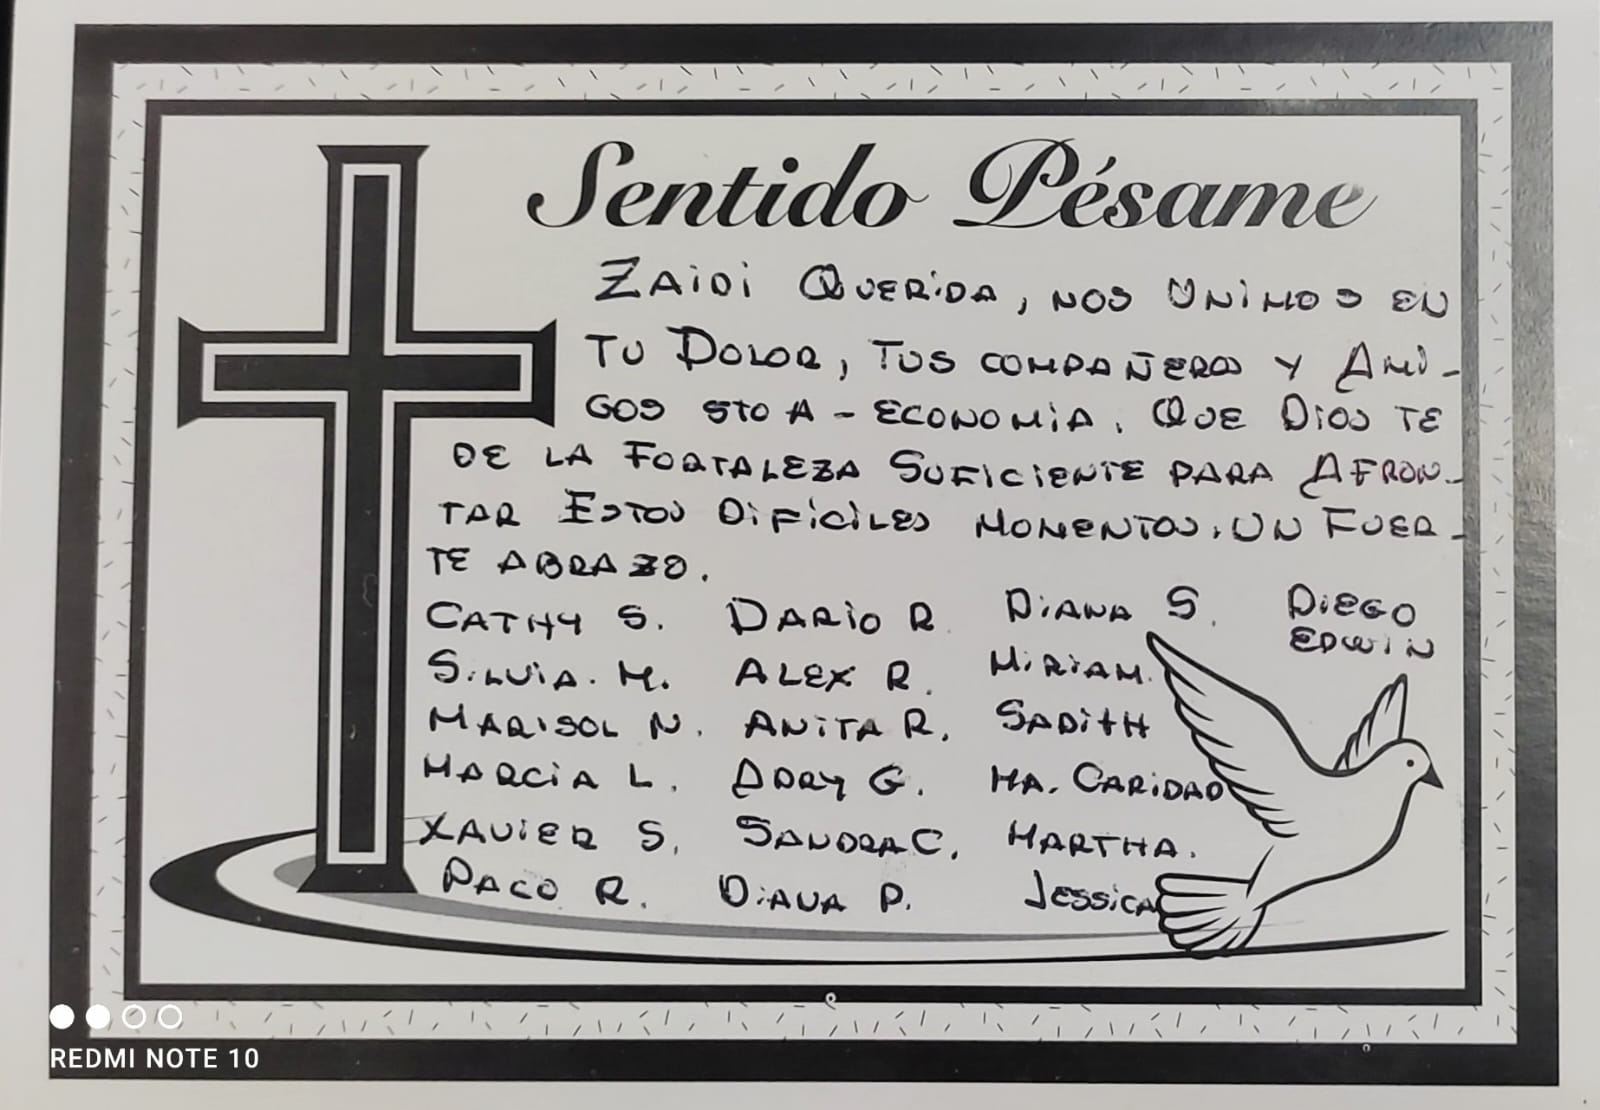 Sentido Pésame
ZAIDI QUERIDA, NOS UNIMOS EN
TU DOLOR, TUS COMPAÑEROS Y AMI-
GOS 5TO A - ECONOMIA. QUE DIOS TE
DE LA FORTALEZA SUFICIENTE PARA AFRON-
TAR ESTOS DIFICILES MOMENTOS. UN FUER-
TE ABRAZO.
CATHY S. DARIO R. DIANA S. DIEGO
EDWIN
SILVIA. M. ALEX R. MIRIAM.
MARISOL N. ANITA R. SADITH
MARCIA L. ADRY G. MA. CARIDAD
XAVIER S. SANDRA C. MARTHA.
PACO R. DIANA P. JESSICA
REDMI NOTE 10